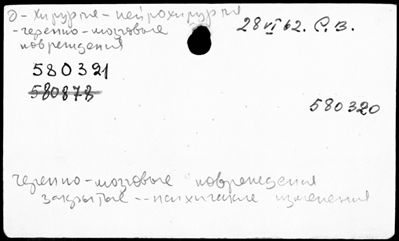 О - хирургия - нейрохирургия
- черепно - мозговые
повреждения
28 VI 62. С. В.
580321
580878
580320
черепно - мозговые повреждения
закрытые -- психические изменения